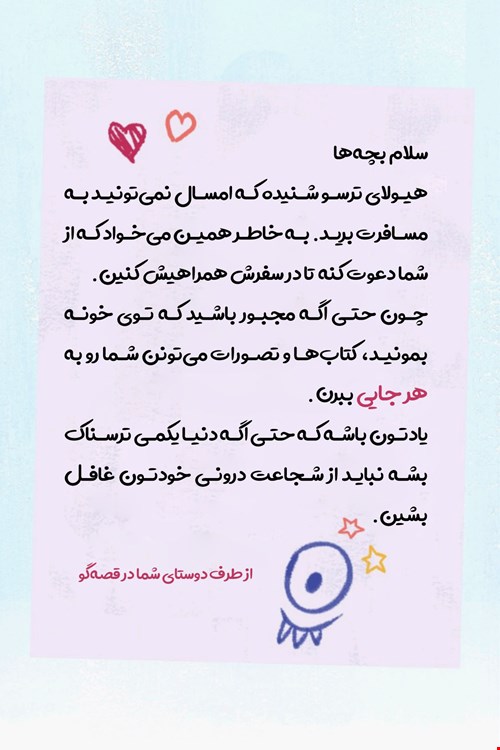 سلام بچه‌ها
هیولای ترسو شنیده که امسال نمی‌تونید به
مسافرت برید. به خاطر همین می‌خواد که از
شما دعوت کنه تا در سفرش همراهیش کنین.
چون حتی اگه مجبور باشید که توی خونه
بمونید، کتاب‌ها و تصورات می‌تونن شما رو به
هر جایی ببرن.
یادتون باشه که حتی اگه دنیا یکمی ترسناک
بشه نباید از شجاعت درونی خودتون غافل
بشین.
از طرف دوستای شما در قصه‌گو